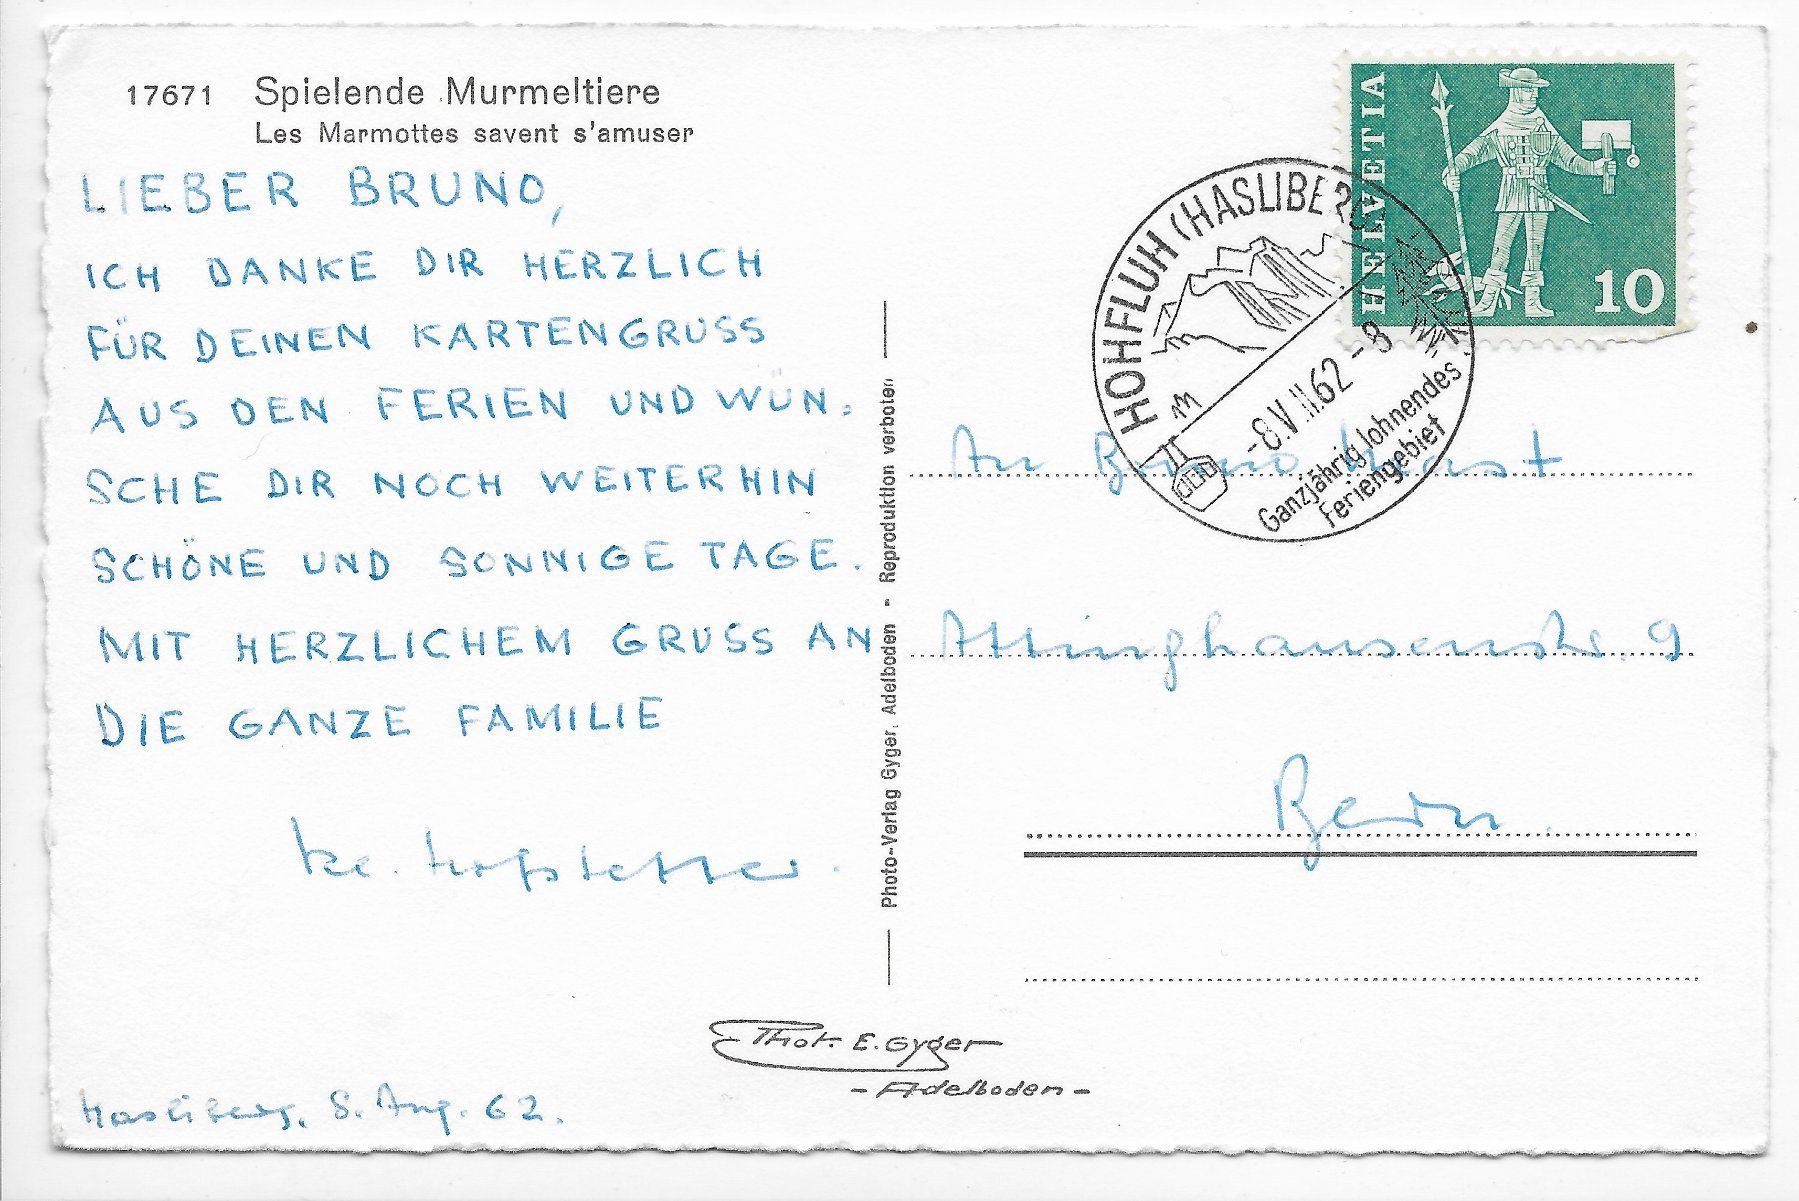 17671 Spielende Murmeltiere
Les Marmottes savent s'amuser
LIEBER BRUNO,
ICH DANKE DIR HERZLICH
FÜR DEINEN KARTENGRUSS
AUS DEN FERIEN UND WÜN-
SCHE DIR NOCH WEITERHIN
SCHÖNE UND SONNIGE TAGE.
MIT HERZLICHEM GRUSS AN
DIE GANZE FAMILIE
Hofstetter.
Hasliberg, 8. Aug. 62.
Photo-Verlag Gyger, Adelboden - Reproduktion verboten
Phot. E. Gyger
- Adelboden -
HELVETIA
10
HOHFLUH (HASLIBERG)
-8.VIII.62-8
Ganzjährig lohnendes
Feriengebiet
An Bruno
Attinghausenstr. 9
Bern.